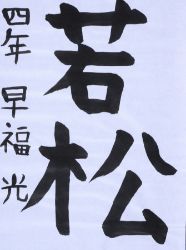 若松
四年 早福 光